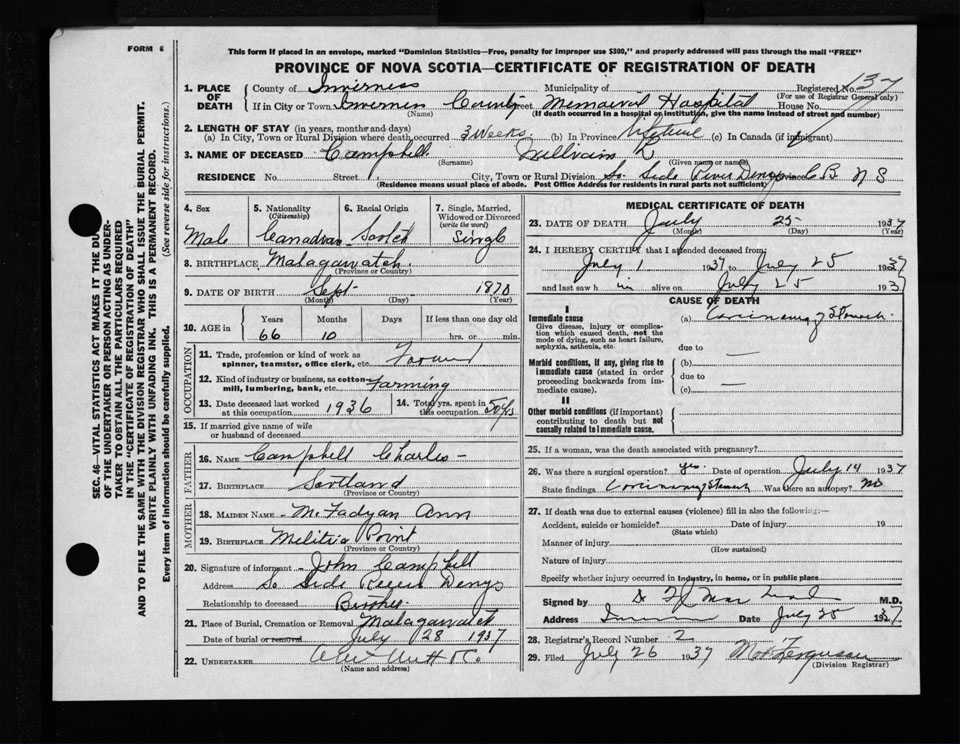 FORM 6
This form if placed in an envelope, marked "Dominion Statistics—Free, penalty for improper use $300," and properly addressed will pass through the mail "FREE"
PROVINCE OF NOVA SCOTIA—CERTIFICATE OF REGISTRATION OF DEATH
SEC. 46—VITAL STATISTICS ACT MAKES IT THE DU
OF THE UNDERTAKER OR PERSON ACTING AS UNDER-
TAKER TO OBTAIN ALL THE PARTICULARS REQUIRED
IN THE "CERTIFICATE OF REGISTRATION OF DEATH"
AND TO FILE THE SAME WITH THE DIVISION REGISTRAR WHO SHALL ISSUE THE BURIAL PERMIT.
WRITE PLAINLY WITH UNFADING INK. THIS IS A PERMANENT RECORD.
Every item of information should be carefully supplied. (See reverse side for instructions.)
1. PLACE OF DEATH County of Inverness Municipality of Registered No. 137
(For use of Registrar General only)
If in City or Town Inverness County Street Memorial Hospital House No.
(Name) (If death occurred in a hospital or institution, give the name instead of street and number)
2. LENGTH OF STAY (in years, months and days)
(a) In City, Town or Rural Division where death occurred 3 weeks (b) In Province Lifetime (c) In Canada (if immigrant)
3. NAME OF DECEASED Campbell
(Surname) (Given name or names)
RESIDENCE No. Street City, Town or Rural Division So. Side River Denys Province C B N S
(Residence means usual place of abode. Post Office Address for residents in rural parts not sufficient)
4. Sex Male
5. Nationality (Citizenship) Canadian
6. Racial Origin Scotch
7. Single, Married, Widowed or Divorced (write the word) Single
8. BIRTHPLACE Malagawatch
(Province or Country)
9. DATE OF BIRTH Sept 1870
(Month) (Day) (Year)
10. AGE in Years 66 Months 10 Days If less than one day old hrs. or min.
OCCUPATION
11. Trade, profession or kind of work as spinner, teamster, office clerk, etc. Farmer
12. Kind of industry or business, as cotton mill, lumbering, bank, etc. Farming
13. Date deceased last worked at this occupation 1936
14. Total yrs. spent in this occupation 50 yrs
15. If married give name of wife or husband of deceased
FATHER
16. NAME Campbell Charles
17. BIRTHPLACE Scotland
(Province or Country)
MOTHER
18. MAIDEN NAME McFadyan Ann
19. BIRTHPLACE Militia Point
(Province or Country)
20. Signature of informant John Campbell
Address So Side River Denys
Relationship to deceased Brother
21. Place of Burial, Cremation or Removal Malagawatch
Date of burial or removal July 28 1937
22. UNDERTAKER
(Name and address)
MEDICAL CERTIFICATE OF DEATH
23. DATE OF DEATH July 25 1937
(Month) (Day) (Year)
24. I HEREBY CERTIFY that I attended deceased from
July 1 1937 to July 25 1937
and last saw h im alive on July 25 1937
CAUSE OF DEATH
I
Immediate cause
Give disease, injury or complication which caused death, not the mode of dying, such as heart failure, asphyxia, asthenia, etc.
(a) Carcinoma of Stomach
due to —
Morbid conditions, if any, giving rise to immediate cause (stated in order proceeding backwards from immediate cause).
(b)
due to
(c) —
II
Other morbid conditions (if important) contributing to death but not causally related to immediate cause.
25. If a woman, was the death associated with pregnancy?
26. Was there a surgical operation? yes. Date of operation July 14 1937
State findings Carcinoma of Stomach Was there an autopsy? no
27. If death was due to external causes (violence) fill in also the following:—
Accident, suicide or homicide? Date of injury 19
(State which)
Manner of injury
(How sustained)
Nature of injury
Specify whether injury occurred in industry, in home, or in public place
Signed by M.D.
Address Date July 25 1937
28. Registrar's Record Number 2
29. Filed July 26 1937 Ferguson
(Division Registrar)